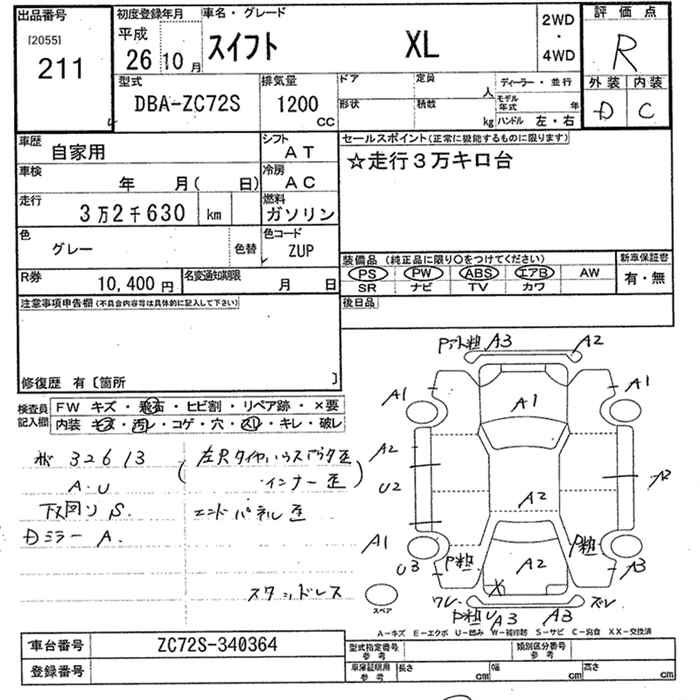 出品番号 初度登録年月 車名・グレード 2WD ・ 4WD 評価点
[2055] 211 平成 26 10月 スイフト XL R
型式 排気量 ドア 定員 人 ディーラー・並行 外装 内装
DBA-ZC72S 1200 CC 形状 積数 kg モデル年式 年 ハンドル 左・右 D C
車歴 自家用 シフト AT セールスポイント(正常に機能するものに限ります)
☆走行3万キロ台
車検 年 月( 日) 冷房 AC
走行 3万2千630 km 燃料 ガソリン
色 グレー 色替 色コード ZUP
装備品 (純正品に限り○をつけてください) 新車保証書
PS PW ABS エアB AW 有・無
SR ナビ TV カワ
R券 10,400円 名変通知期限 月 日
後日品
注意事項申告欄(不具合内容等は具体的に記入して下さい)
修復歴 有〔箇所 〕
検査員記入欄 FW キズ・飛石・ヒビ割・リペア跡・×要
内装 キズ・汚レ・コゲ・穴・スレ・キレ・破レ
32613
A.U インナー歪
下回りS. エンドパネル歪
Dミラー A.
スタッドレス
A3 A2
A1 A1 A1
A2 A2
U2 A2
A1 P粗 A2 P粗
U3 A3
ワレ ズレ
P粗 U A3 A3
スペア
A-キズ E-エクボ U-凹み W-補修跡 S-サビ C-腐食 XX-交換済
車台番号 ZC72S-340364 型式指定番号 参考 類別区分番号 参考
登録番号 車庫証明用 参考 長さ cm 幅 cm 高さ cm